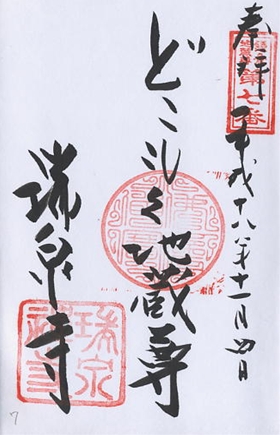 奉拝 平成十八年十一月四日
第七番
どこもく地蔵尊
瑞泉寺
瑞泉
7